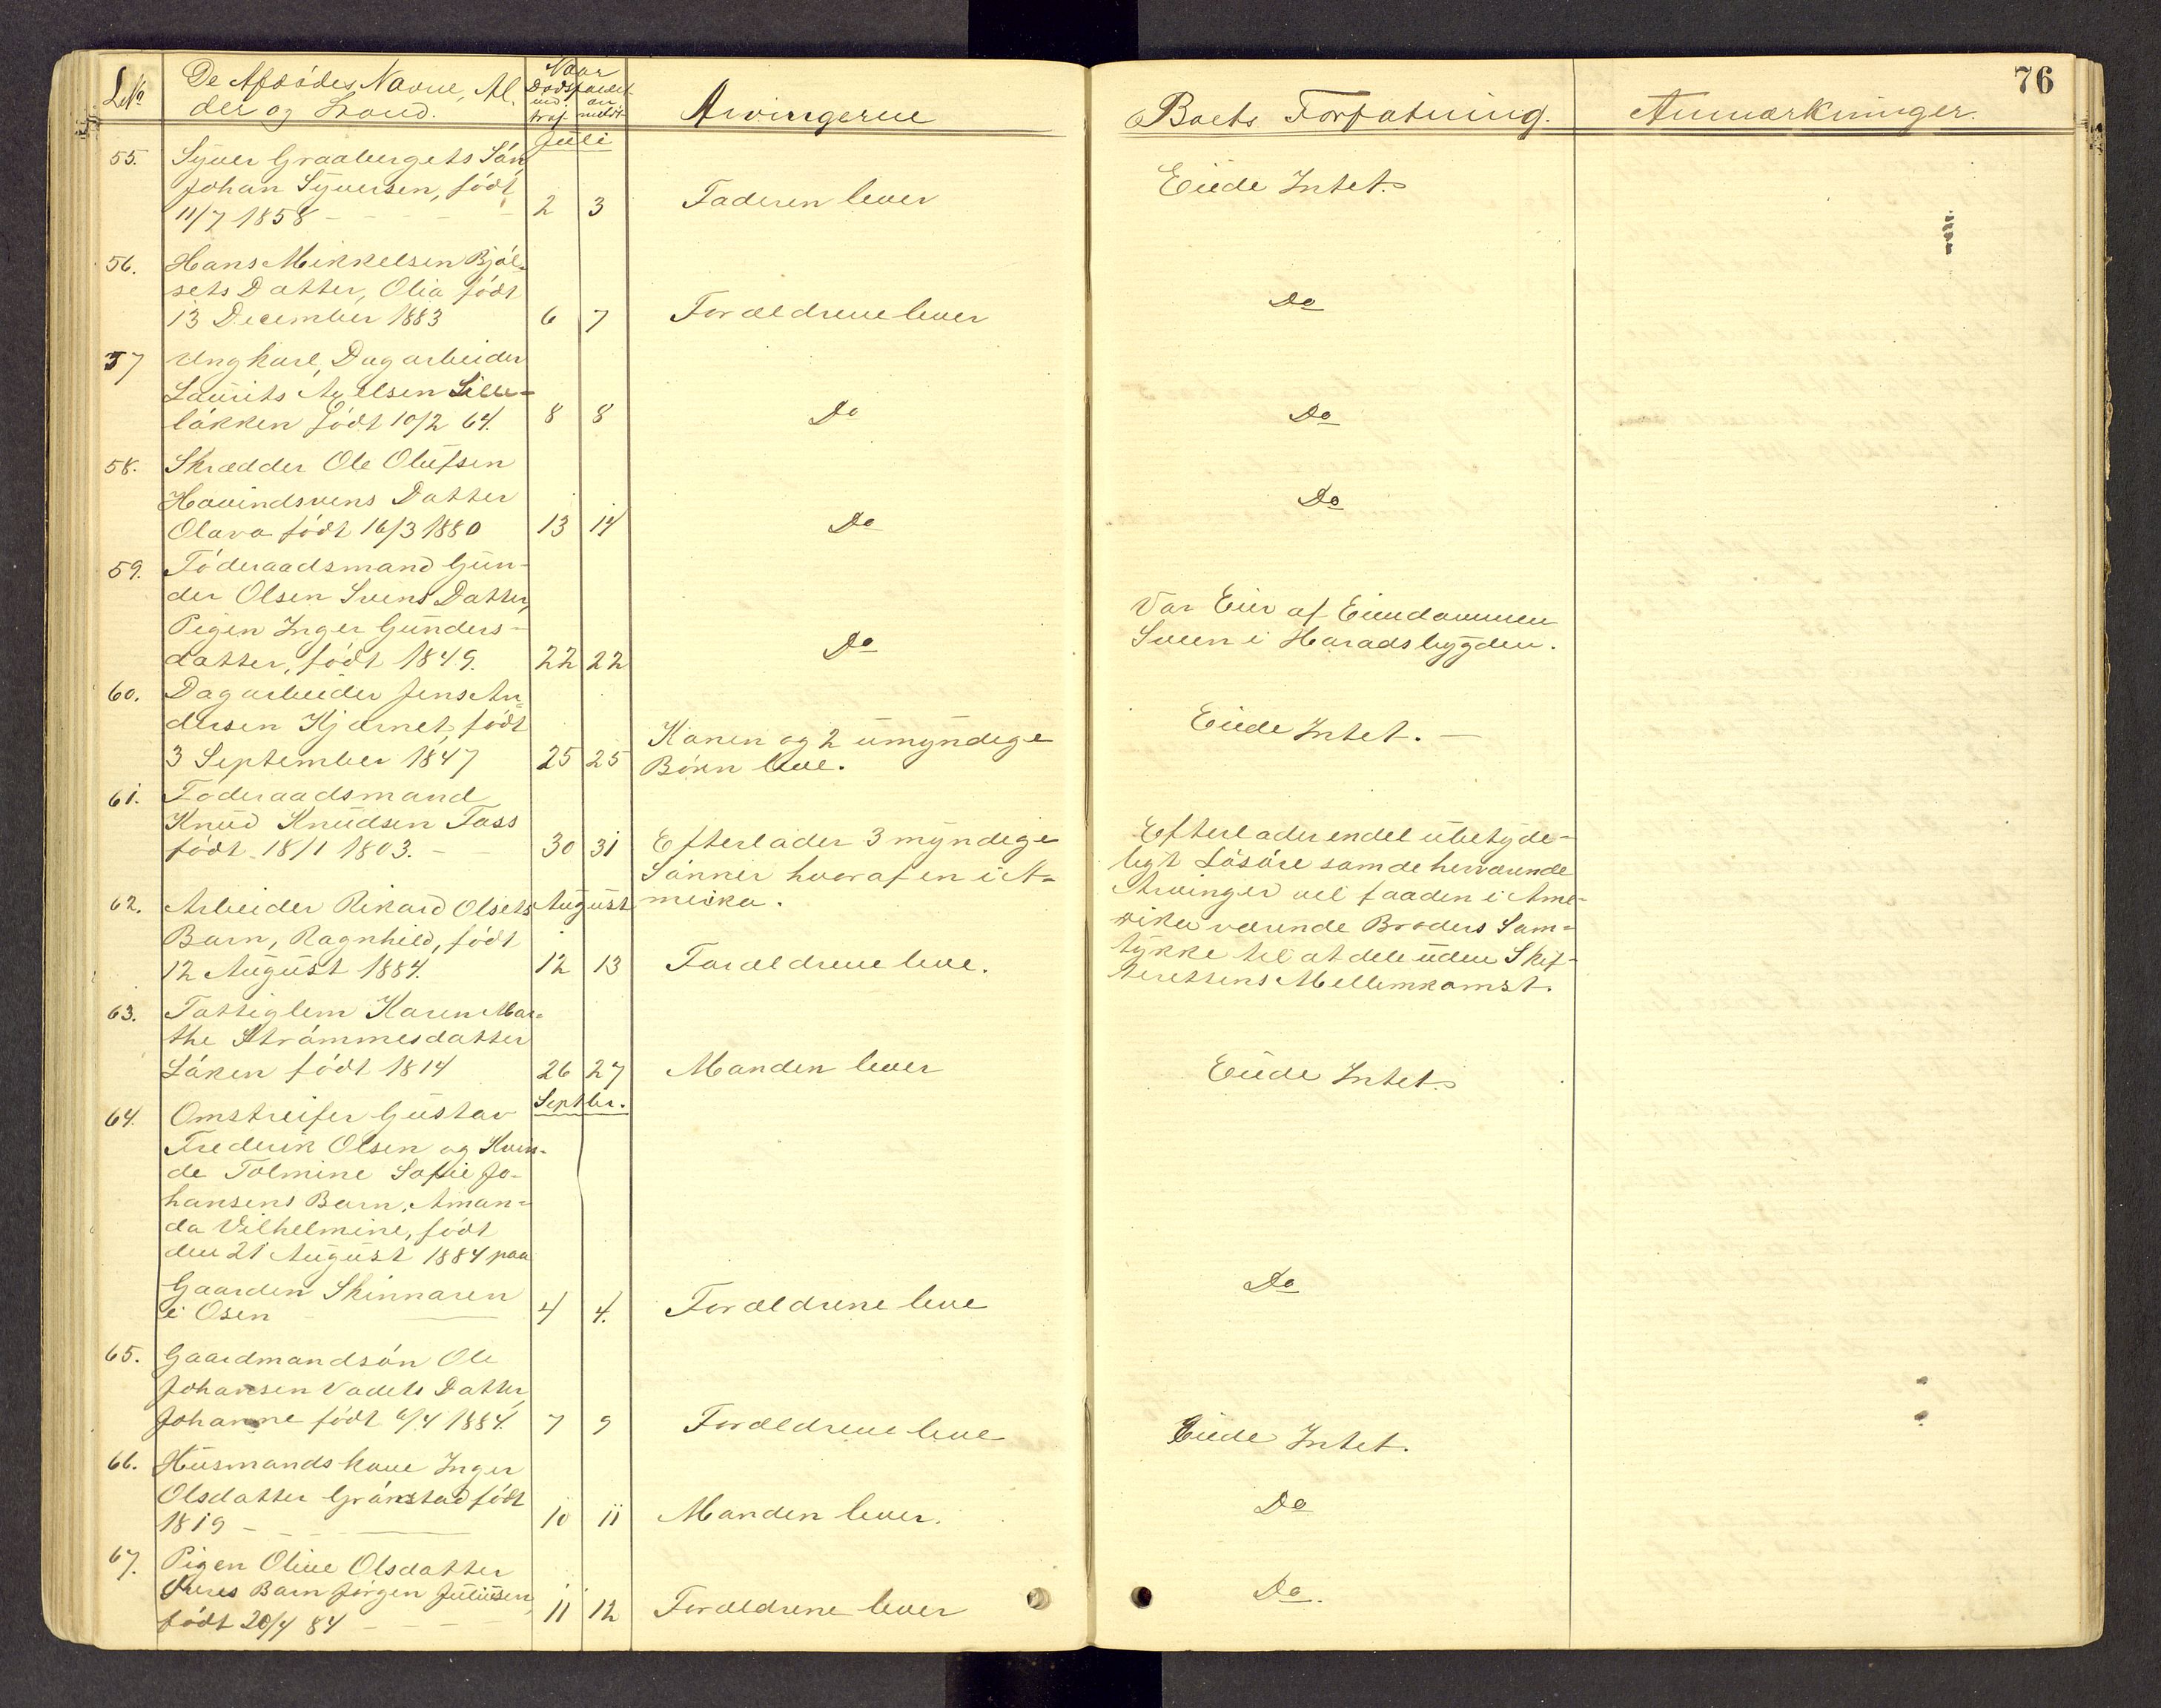 76
LNo
De Afdødes Navne, Al-
der og Stand.
Naar
Dødsfaldet
ind-
traf.
an-
meldt
Arvingerne
Boets Forfatning.
Anmærkninger.
Juli
55. Syver Graabergets Søn
Johan Syversen, født
11/7 1858 - - - - 2 3 Faderen lever Eiede Intet.
56. Hans Mikkelsen Bjøl-
sets Datter, Olia født
13 December 1883 6 7 Forældrene lever Do
57 Ungkarl, Dagarbeider
Laurits Axelsen Lille-
løkken født 10/2 64. 8 8 Do Do
58. Skrædder Ole Olufsen
Hovindsvens Datter
Olava født 16/3 1880 13 14 Do Do
59. Føderaadsmand Gun-
der Olsen Svens Datter,
Pigen Inger Gunders-
datter, født 1849. 22 22 Do
Var Eier af Eiendommen
Sveen i Haradsbygden.
60. Dagarbeider Jens An-
dersen Kjernet, født
3 September 1847 25 25
Konen og 2 umyndige
Børn leve.
Eiede Intet. -
61. Føderaadsmand
Knud Knudsen Fass
født 18/1 1803. - 30 31
Efterlader 3 myndige
Sønner hvoraf en i A-
merika.
Efterlader endel ubetyde-
ligt Løsøre som de herværende
Arvinger vil faa den i Ame-
rika værende Broders Sam-
tykke til at dele uden Skif-
terettens Mellemkomst.
August
62. Arbeider Rikard Olsets
Barn, Ragnhild, født
12 August 1884. 12 13 Forældrene leve.
63. Fattiglem Karen Mar-
the Strømmesdatter
Løken født 1814 26 27 Manden lever Eiede Intet.
Septbr.
64. Omstreifer Gustav
Frederik Olsen og Kvin-
de Tolmine Sofie Jo-
hansens Barn, Aman-
da Vilhelmine, født
den 21 August 1884 paa
Gaarden Skinnaren
i Osen 4 4. Forældrene leve Do
65. Gaardmandsøn Ole
Johansen Vadets Datter,
Johanne født 6/4 1884. 7 9 Forældrene leve Eiede Intet.
66. Husmandskone Inger
Olsdatter Grønstad født
1819 - - - 10 11 Manden lever. Do
67. Pigen Oline Olsdatter
Barn Jørgen Juliusen,
født 20/4 84 - - - 11 12 Forældrene lever Do.